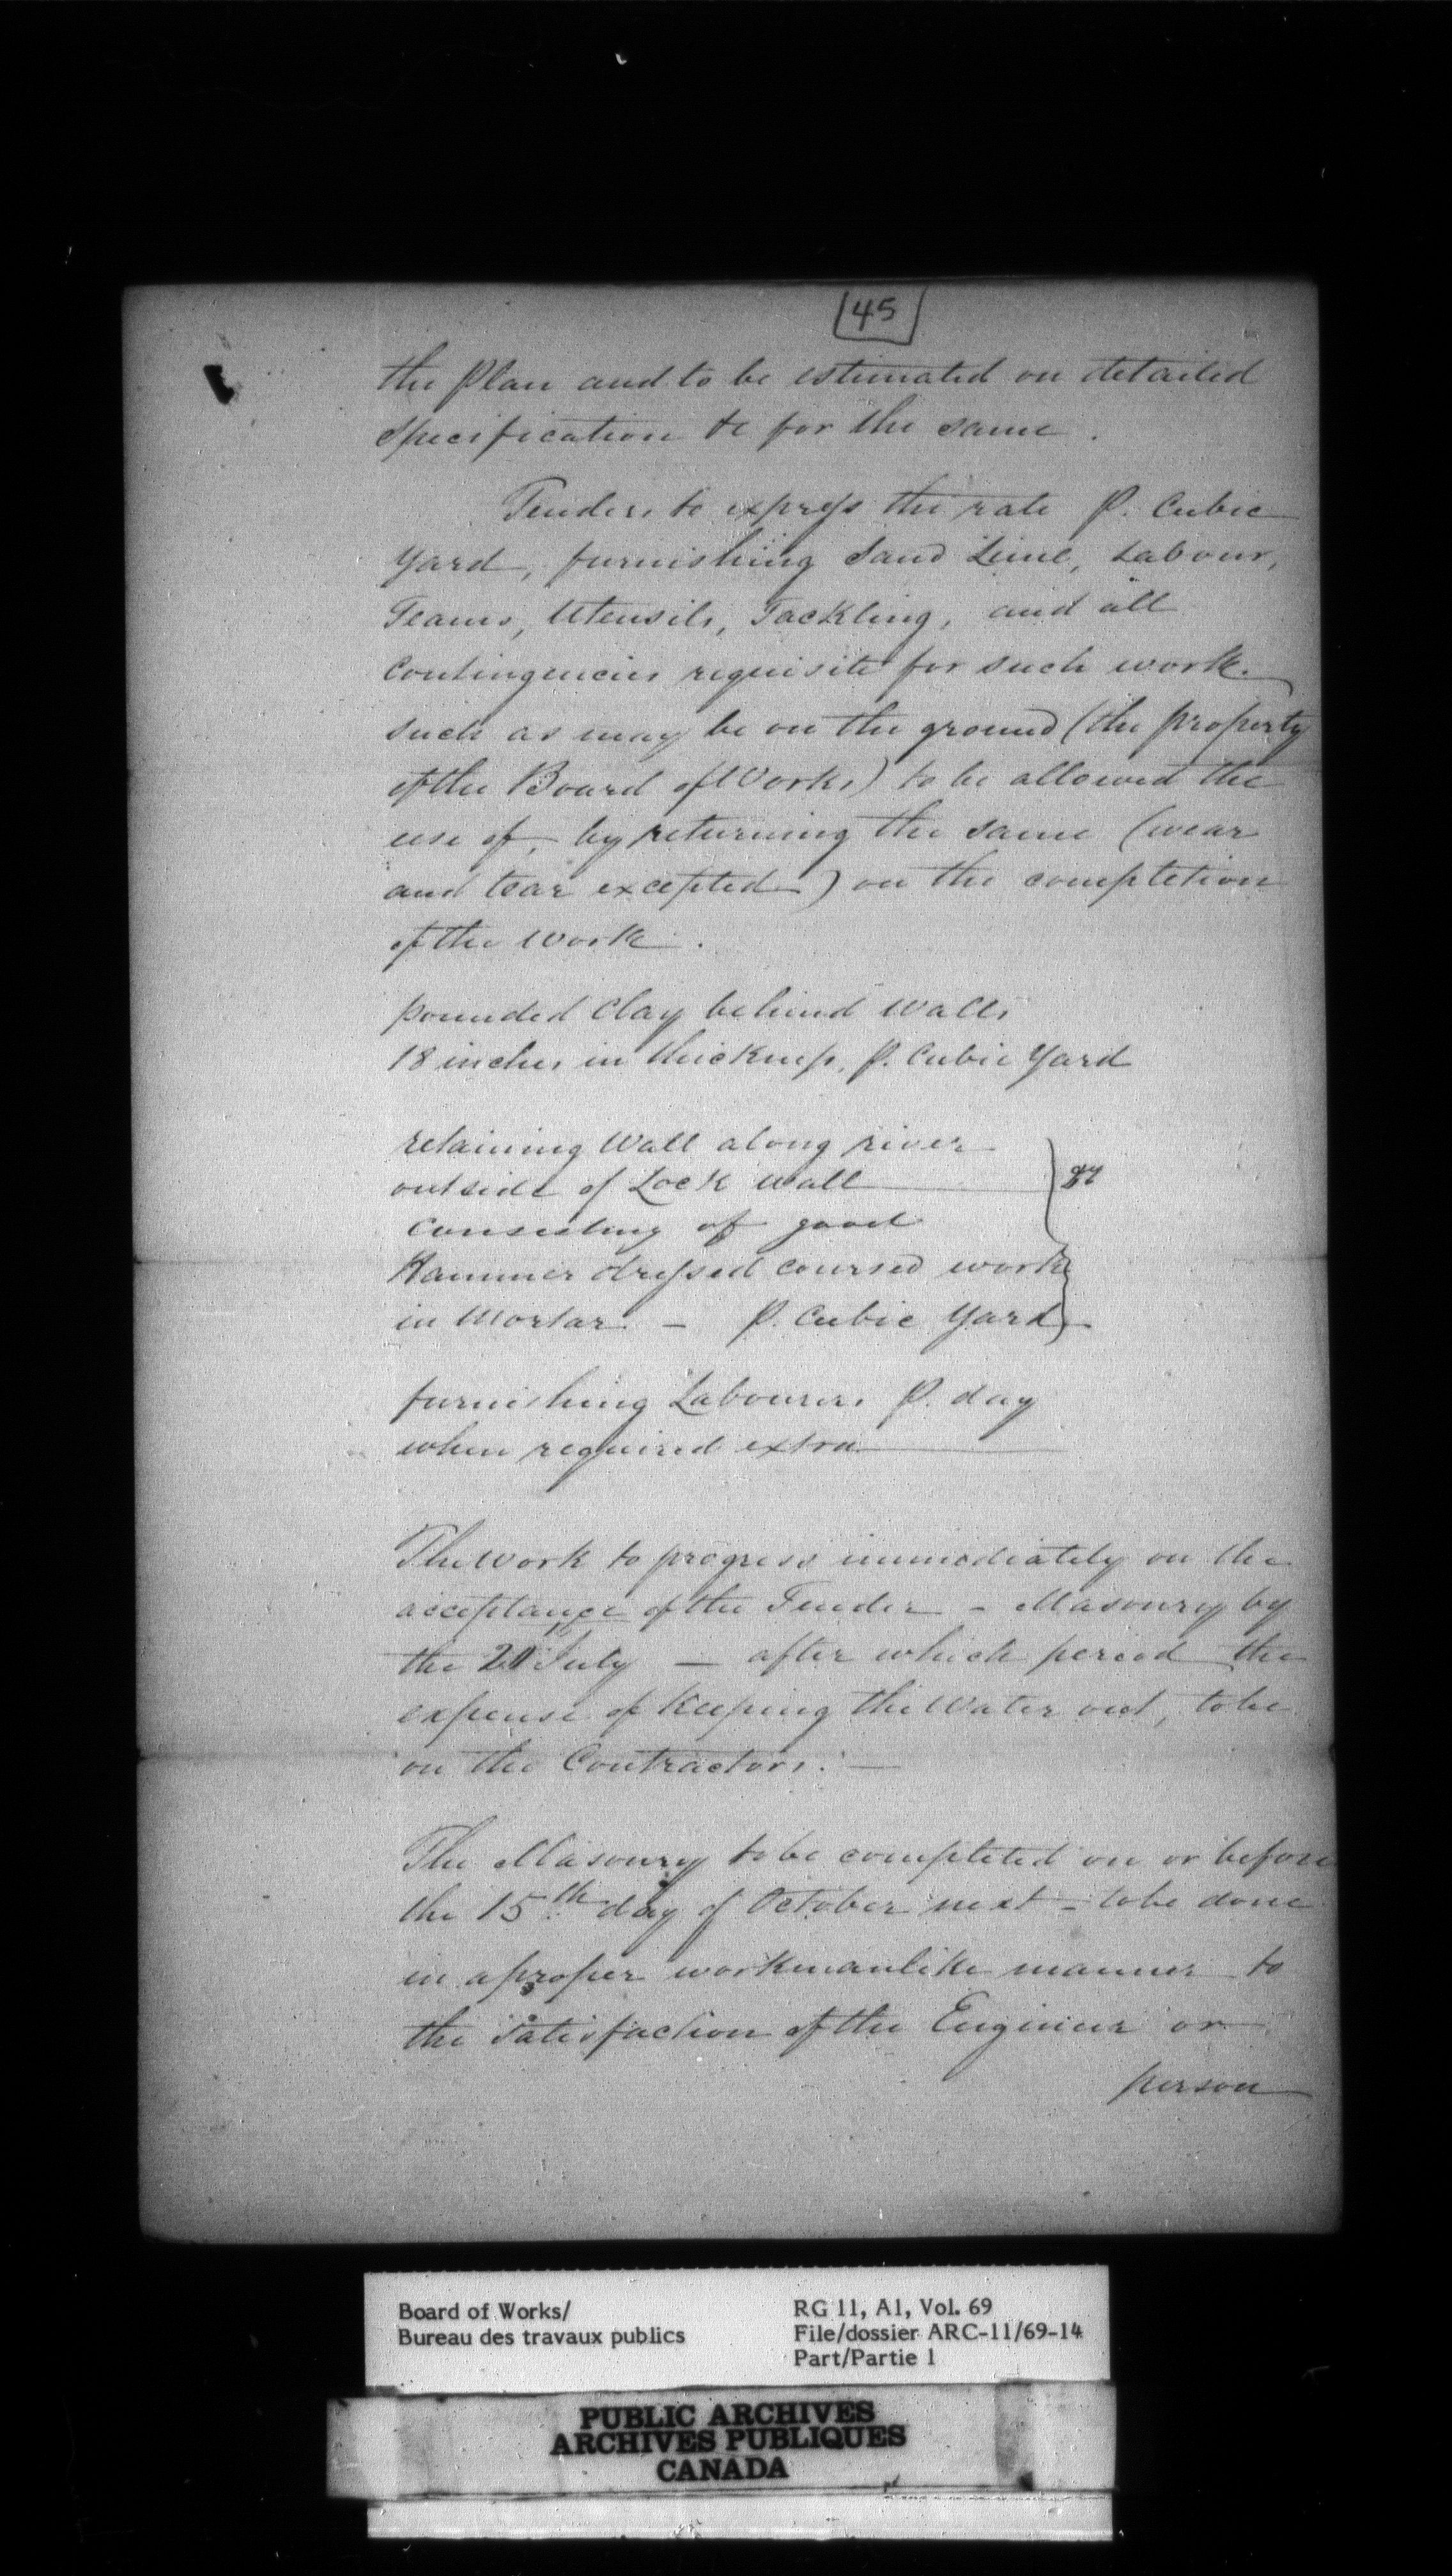 45
the Plan and to be estimated on detailed
Specification &c for the same.
Tenders to express the rate P. Cubic
Yard, furnishing Sand Lime, Labour,
Teams, Utensils, Tackling, and all
Contingencies requisite for such work.
such as may be on the ground (the property
of the Board of Works) to be allowed the
use of, by returning the same (wear
and tear excepted) on the completion
of the work.
pounded Clay behind walls
18 inches in thickness, P. Cubic Yard
retaining Wall along river
outside of Lock wall
Consisting of good
Hammer dressed coursed work
in Mortar. — P. Cubic Yard
furnishing Labourers P. day
when required extra
The work to progress immediately on the
acceptance of the Tender - Masonry by
the July — after which period the
expense of keeping the Water out, to be
on the Contractors. —
The Masonry to be completed on or before
the 15th day of October next - to be done
in a proper workmanlike manner to
the Satisfaction of the Engineer or
person
Board of Works/
Bureau des travaux publics
RG 11, A1, Vol. 69
File/dossier ARC-11/69-14
Part/Partie 1
PUBLIC ARCHIVES
ARCHIVES PUBLIQUES
CANADA